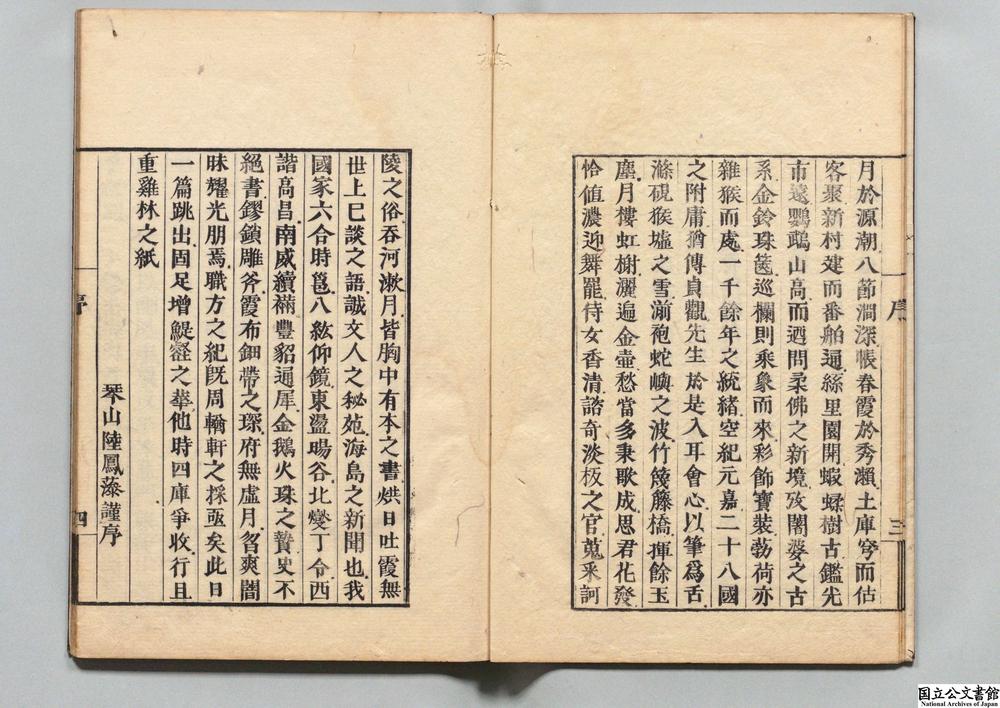 月於源潮八節澗深帳春霞於秀瀨土庫穹而估
客聚新村建而番舶通絲里園開蝦蟝樹古鑑光
市遠鸚鵡山高而迺問柔佛之新境攷闍婆之古
系金鈴珠篋巡欄則乘象而來彩飾寶裝勃荷亦
雜猴而處一千餘年之統緒空紀元嘉二十八國
之附庸猶傳貞觀先生於是入耳會心以筆爲舌
滌硯猴墟之雪湔袍蛇嶼之波竹篾藤橋揮餘玉
塵月樓虹榭灑遍金壺愁當多秉歌成思君花發
恰值濃迎舞罷侍女香清諮奇淡板之官蒐釆訶
序
三
陵之俗吞河漱月皆胸中有本之書烘日吐霞無
世上已談之語誠文人之秘苑海島之新聞也我
國家六合時邕八紘仰鏡東盪暘谷北燮丁令西
諧高昌南威續樠豐貂通犀金鵝火珠之贄史不
絕書鏐鎖雕斧霞布鈿帶之琛府無虛月曶爽闇
昧耀光朋焉職方之紀旣周輶軒之採亟矣此日
一篇跳出固足增鯷壑之華他時四庫爭收行且
重雞林之紙
琴山陸鳳藻謹序
序
四
国立公文書館
National Archives of Japan